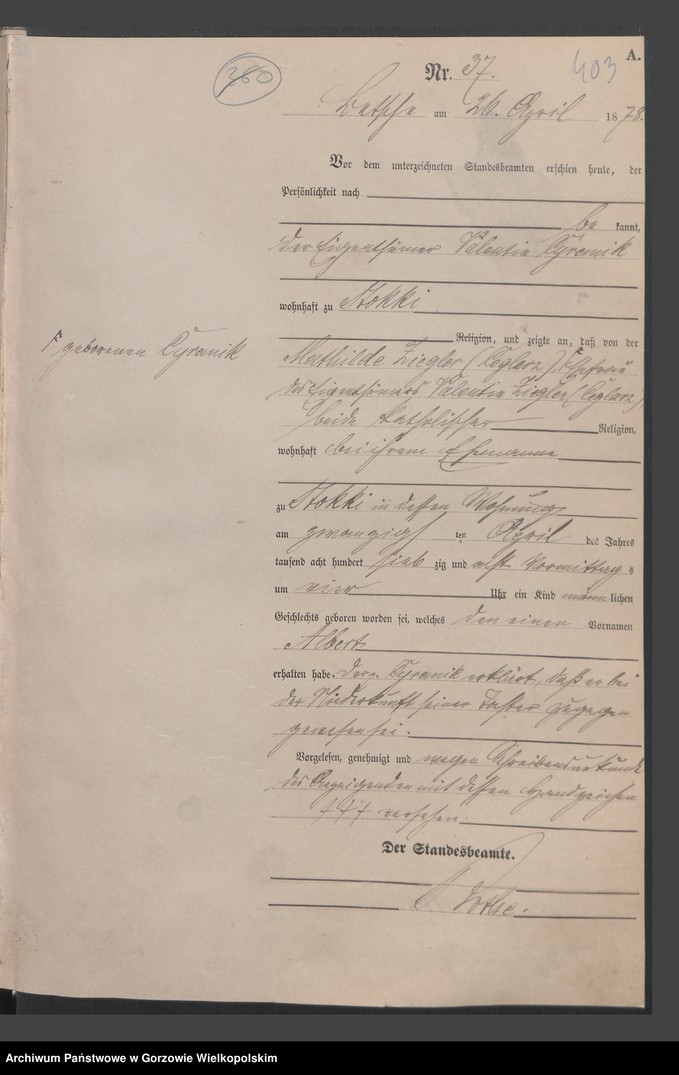 A.
360
403
Nr. 37.
Betsche am 20. April 1878.
Vor dem unterzeichneten Standesbeamten erschien heute, der
Persönlichkeit nach
be kannt,
der Eigenthümer Valentin Cyranik
wohnhaft zu Stokki
Religion, und zeigte an, daß von der
Mathilde Ziegler (Ceglarz), Ehefrau
des Eigenthümers Valentin Ziegler (Ceglarz)
F geborenen Cyranik
beide katholischer Religion,
wohnhaft bei ihrem Ehemanne
zu Stokki in dessen Wohnung
am zwanzigst ten April des Jahres
tausend acht hundert sieb zig und acht Vormittag s
um vier Uhr ein Kind männ lichen
Geschlechts geboren worden sei, welches den einen Vornamen
Albert
erhalten habe. Cyranik erklärt, daß er bei
der Niederkunft seiner Tochter zugegen
gewesen sei.
Vorgelesen, genehmigt und wegen Schreibensunkunde
des Anzeigenden mit dessen Handzeichen
††† versehen.
Der Standesbeamte.
Archiwum Państwowe w Gorzowie Wielkopolskim